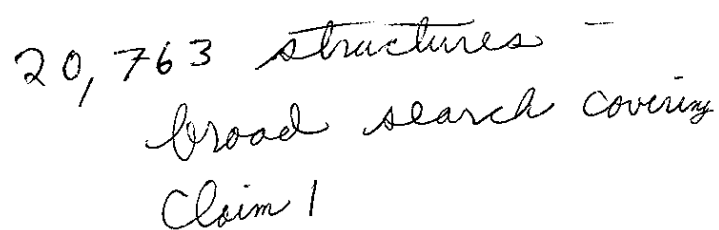 20,763 structures -
broad search covering
Claim 1